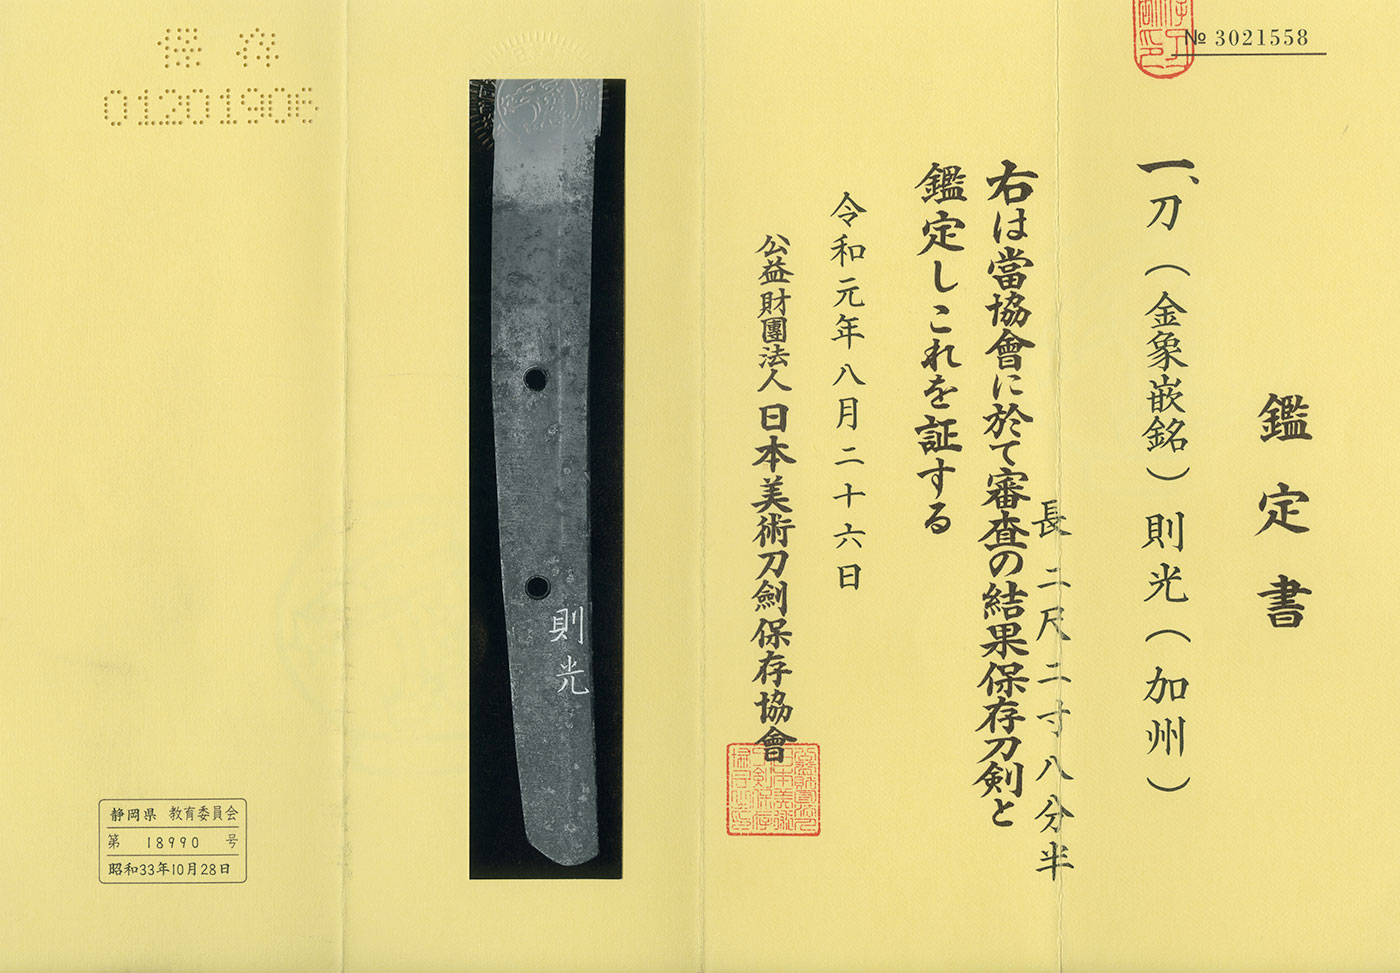 № 3021558
鑑定書
一、刀(金象嵌銘)則光(加州)
長二尺二寸八分半
右は當協會に於て審査の結果保存刀剣と
鑑定しこれを証する
令和元年八月二十六日
公益財團法人 日本美術刀劍保存協會
則光
保存
01201906
静岡県 教育委員会
第 18990 号
昭和33年10月28日